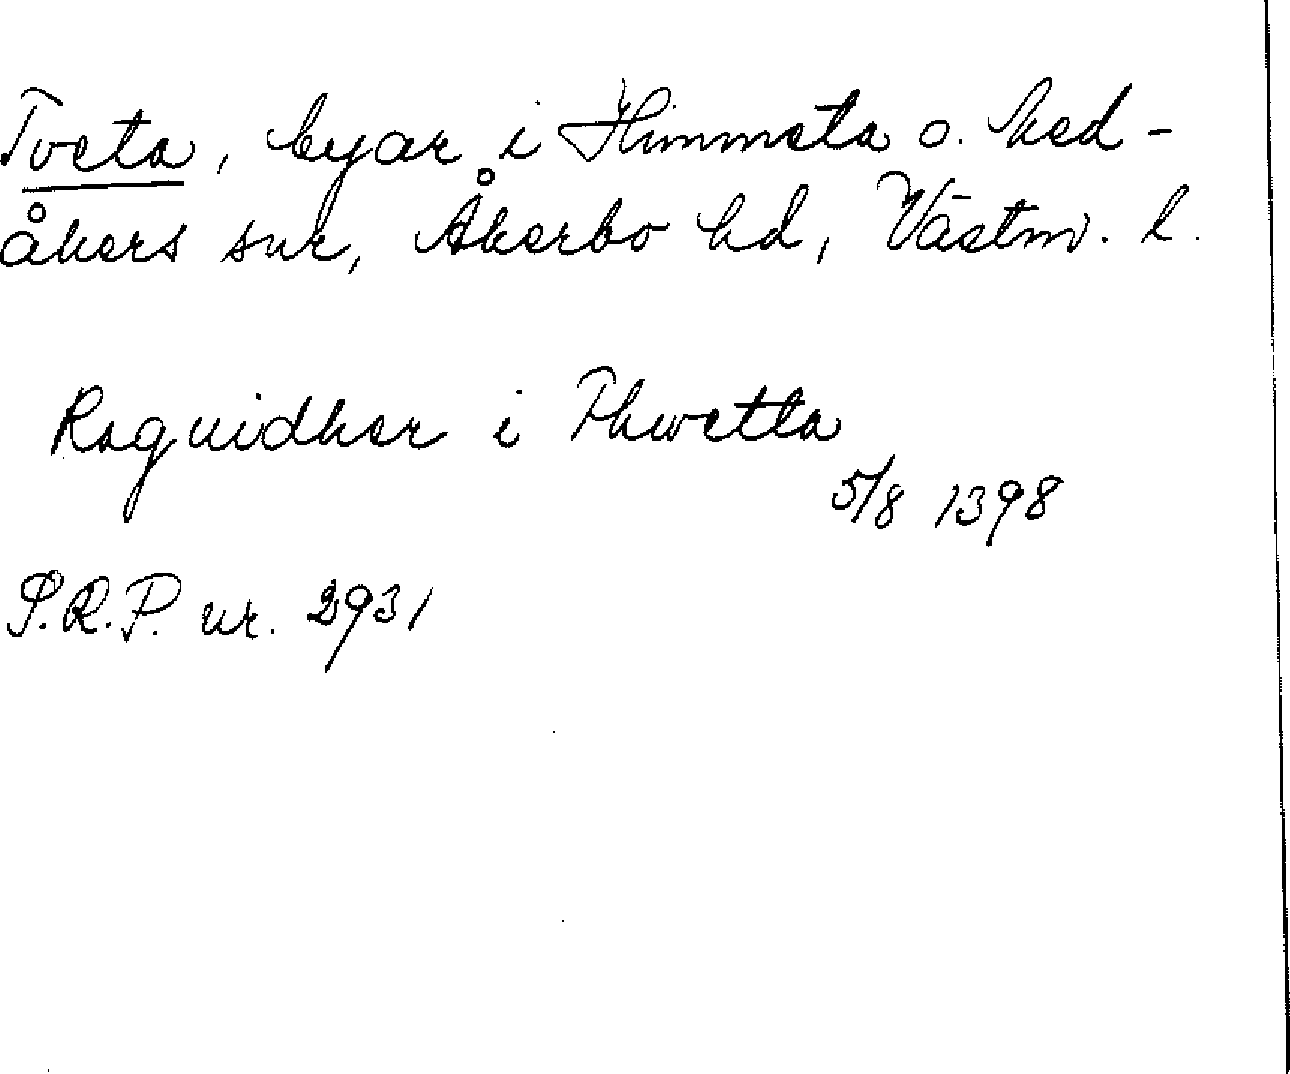 Tveta, byar i Himmeta o. Hed-
åkers snr, Åkerbo hd, Västm. l.
Ragnidher i Thwetta
5/8 1398
S.R.P. nr. 2931